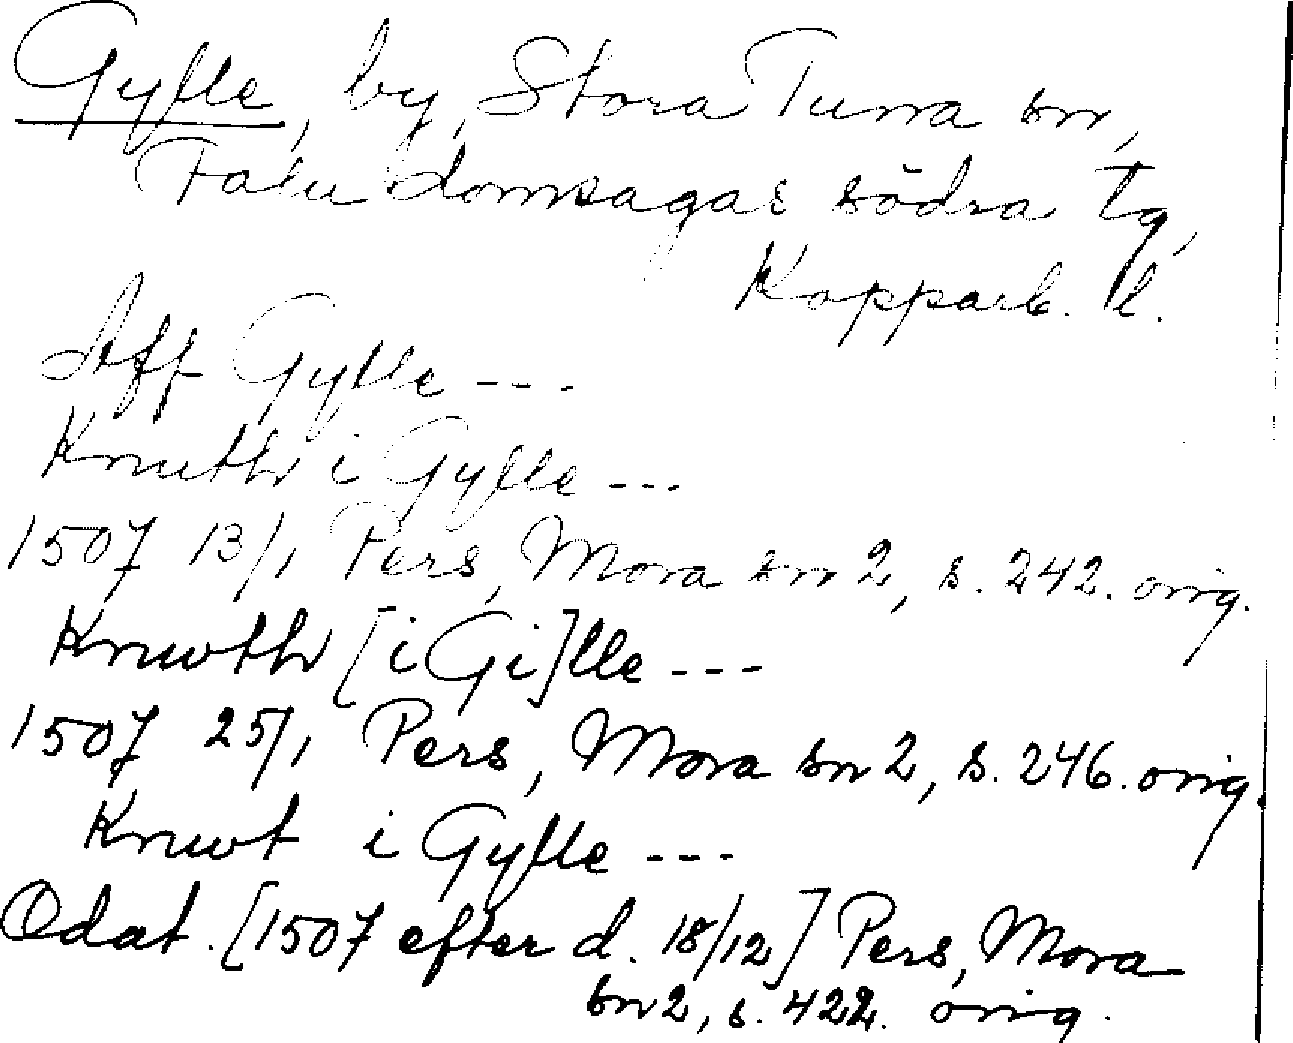 Gylle, by, Stora Tuna sn,
Falu domsagas södra tg,
Kopparb. l.
Aff Gylle ---
Knuth i Gylle ---
1507 13/1 Pers, Mora sn 2, s. 242. orig.
Knwth [i Gi]lle ---
1507 25/1 Pers, Mora sn 2, s. 246. orig.
Knwt i Gylle ---
Odat. [1507 efter d. 18/12] Pers, Mora
sn 2, s. 422. orig.